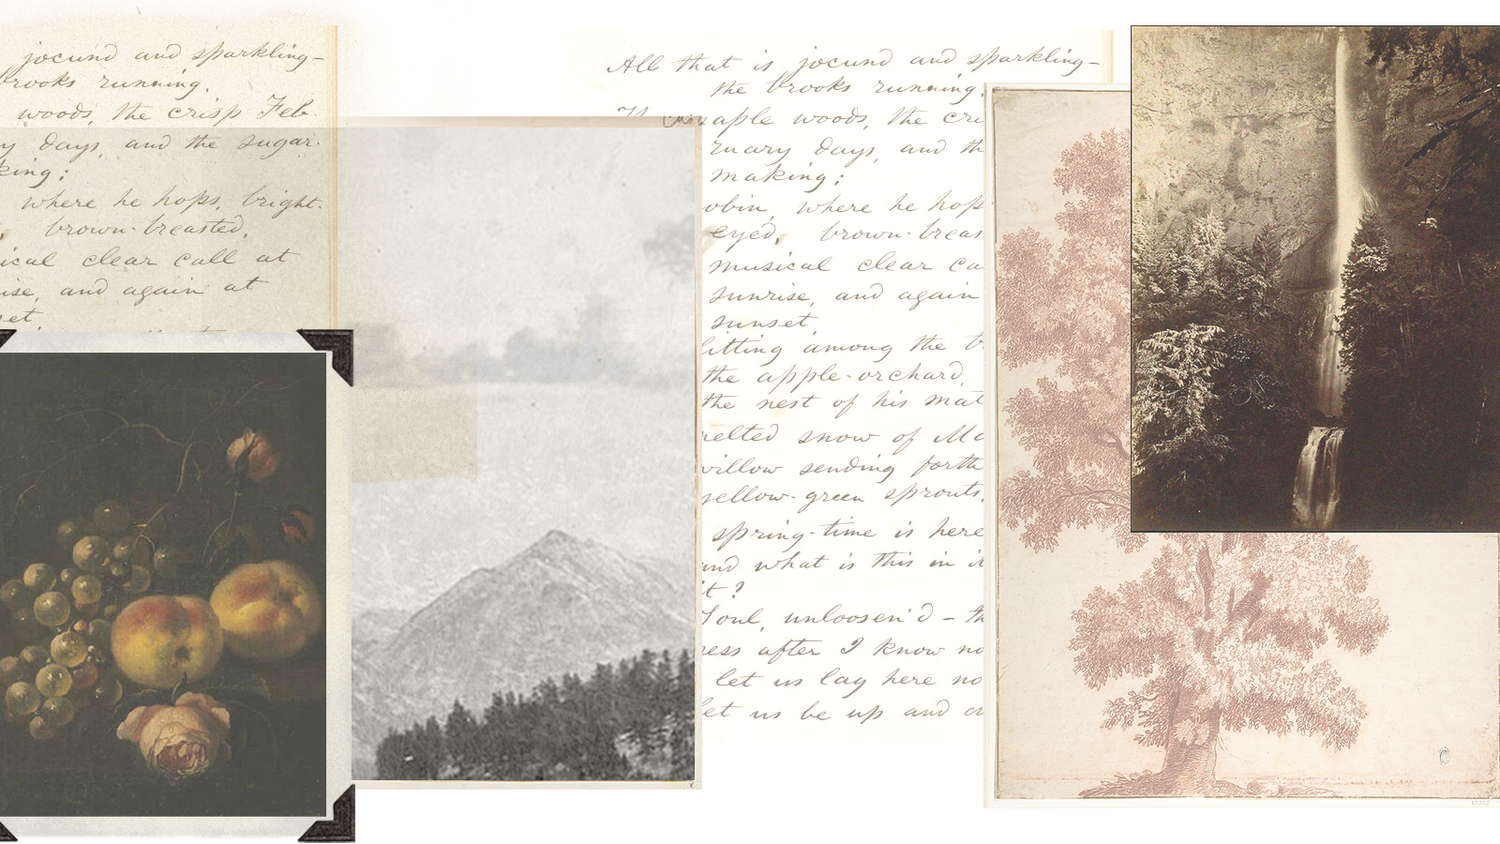 jocund and sparkling-
brooks running,
woods, the crisp Feb-
days, and the sugar-
king;
where he hops, bright-
brown-breasted,
ical clear call at
ise, and again at
set,
All that is jocund and sparkling-
the brooks running,
maple woods, the cri
ruary days, and th
making;
obin, where he hop
eyed, brown-breas
musical clear ca
sunrise, and again
sunset,
litting among the b
the apple-orchard,
the nest of his mat
melted snow of Ma
willow sending forth
yellow-green sprouts,
spring-time is here
and what is this in it
it?
Soul, unloosen'd - th
ness after I know no
let us lag here no
let us be up and a